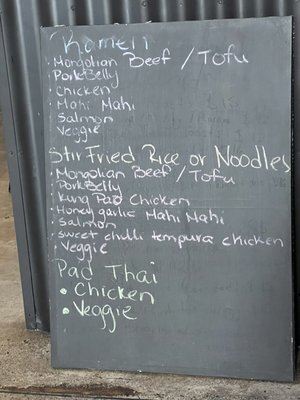 Ramen
Mongolian Beef / Tofu
Pork Belly
Chicken
Mahi Mahi
Salmon
Veggie
Stir Fried Rice or Noodles
Mongolian Beef / Tofu
Pork Belly
Kung Pao Chicken
Honey garlic Mahi Mahi
Salmon
Sweet chilli tempura chicken
Veggie
Pad Thai
• Chicken
• Veggie